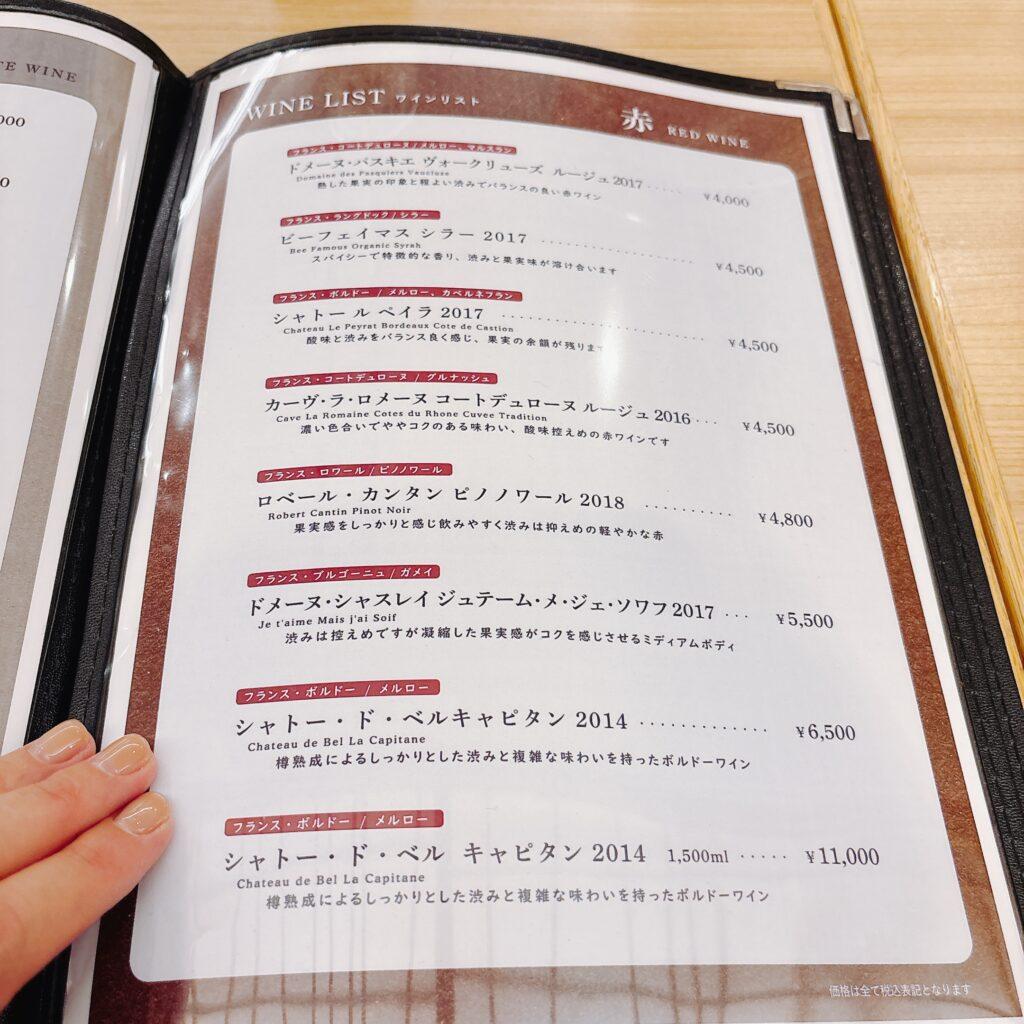 TE WINE
000
0
WINE LIST ワインリスト
赤 RED WINE
フランス・コートデュローヌ / メルロー、マルスラン
ドメーヌ・パスキエ ヴォークリューズ ルージュ 2017 ····· ¥4,000
Domaine des Pasquiers Vaucluse
熟した果実の印象と程よい渋みでバランスの良い赤ワイン
フランス・ラングドック / シラー
ビーフェイマス シラー 2017 ···················· ¥4,500
Bee Famous Organic Syrah
スパイシーで特徴的な香り、渋みと果実味が溶け合います
フランス・ボルドー / メルロー、カベルネフラン
シャトー ル ペイラ 2017 ···················· ¥4,500
Chateau Le Peyrat Bordeaux Cote de Castion
酸味と渋みをバランス良く感じ、果実の余韻が残ります
フランス・コートデュローヌ / グルナッシュ
カーヴ・ラ・ロメーヌ コートデュローヌ ルージュ 2016 ··· ¥4,500
Cave La Romaine Cotes du Rhone Cuvee Tradition
濃い色合いでややコクのある味わい、酸味控えめの赤ワインです
フランス・ロワール / ピノノワール
ロベール・カンタン ピノノワール 2018 ·········· ¥4,800
Robert Cantin Pinot Noir
果実感をしっかりと感じ飲みやすく渋みは抑えめの軽やかな赤
フランス・ブルゴーニュ / ガメイ
ドメーヌ・シャスレイ ジュテーム・メ・ジェ・ソワフ 2017 ··· ¥5,500
Je t'aime Mais j'ai Soif
渋みは控えめですが凝縮した果実感がコクを感じさせるミディアムボディ
フランス・ボルドー / メルロー
シャトー・ド・ベルキャピタン 2014 ··········· ¥6,500
Chateau de Bel La Capitane
樽熟成によるしっかりとした渋みと複雑な味わいを持ったボルドーワイン
フランス・ボルドー / メルロー
シャトー・ド・ベル キャピタン 2014 1,500ml ····· ¥11,000
Chateau de Bel La Capitane
樽熟成によるしっかりとした渋みと複雑な味わいを持ったボルドーワイン
価格は全て税込表記となります